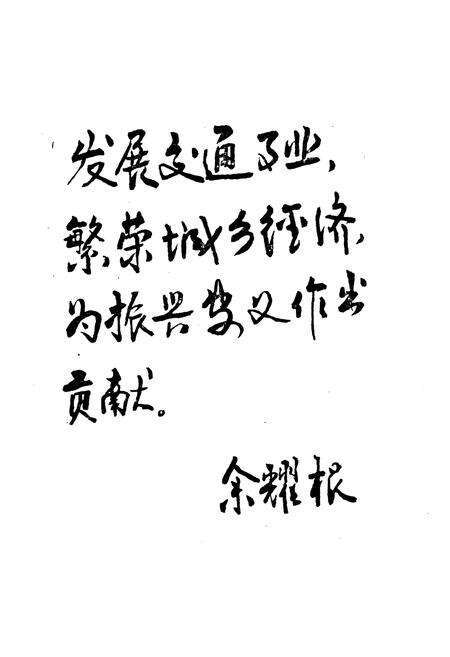 发展交通事业，
繁荣城乡經济，
为振兴安义作出
贡献。
余耀根